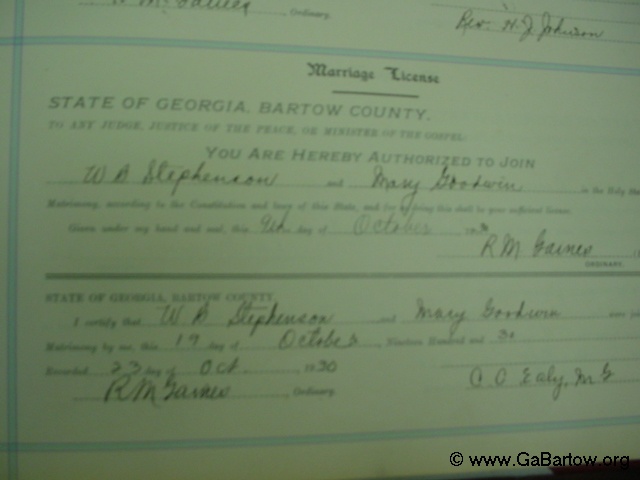 R M Gaines, Ordinary.
Rev. H. J. Johnson
Marriage License
STATE OF GEORGIA, BARTOW COUNTY.
TO ANY JUDGE, JUSTICE OF THE PEACE, OR MINISTER OF THE GOSPEL:
YOU ARE HEREBY AUTHORIZED TO JOIN
W B Stephenson and Mary Goodwin in the Holy
Matrimony, according to the Constitution and laws of this State, and for so doing this shall be your sufficient license.
Given under my hand and seal, this 9th day of October 1930
R M Gaines
ORDINARY.
STATE OF GEORGIA, BARTOW COUNTY.
I certify that W B Stephenson and Mary Goodwin were
Matrimony by me, this 19 day of October, Nineteen Hundred and 30
Recorded 23 day of Oct. 1930
C O Ealy, M G
R M Gaines Ordinary.
© www.GaBartow.org